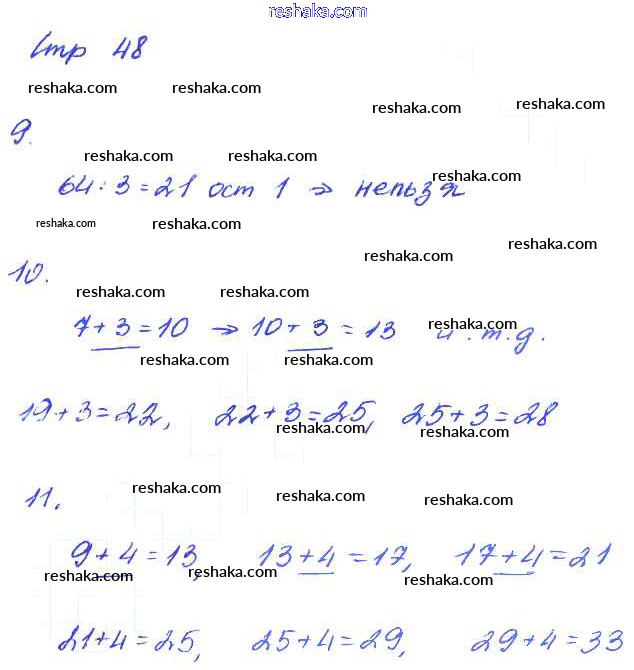 reshaka.com
Стр 48
reshaka.com reshaka.com reshaka.com reshaka.com
9.
reshaka.com reshaka.com reshaka.com
64:3=21 ост 1 ⇒ нельзя
reshaka.com reshaka.com reshaka.com reshaka.com
10.
reshaka.com reshaka.com reshaka.com
7+3=10 → 10+3=13 и.т.д.
reshaka.com reshaka.com reshaka.com
19+3=22, 22+3=25, 25+3=28
reshaka.com reshaka.com
11.
reshaka.com reshaka.com reshaka.com
9+4=13, 13+4=17, 17+4=21
reshaka.com reshaka.com reshaka.com
21+4=25, 25+4=29, 29+4=33